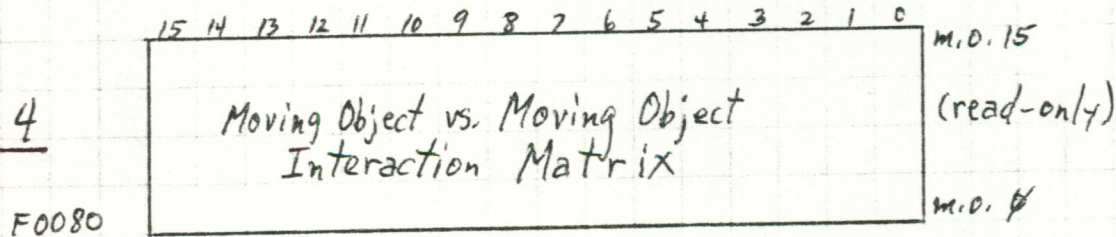 15 14 13 12 11 10 9 8 7 6 5 4 3 2 1 0
m.o. 15
4
Moving Object vs. Moving Object
(read-only)
Interaction Matrix
F0080
m.o. 0